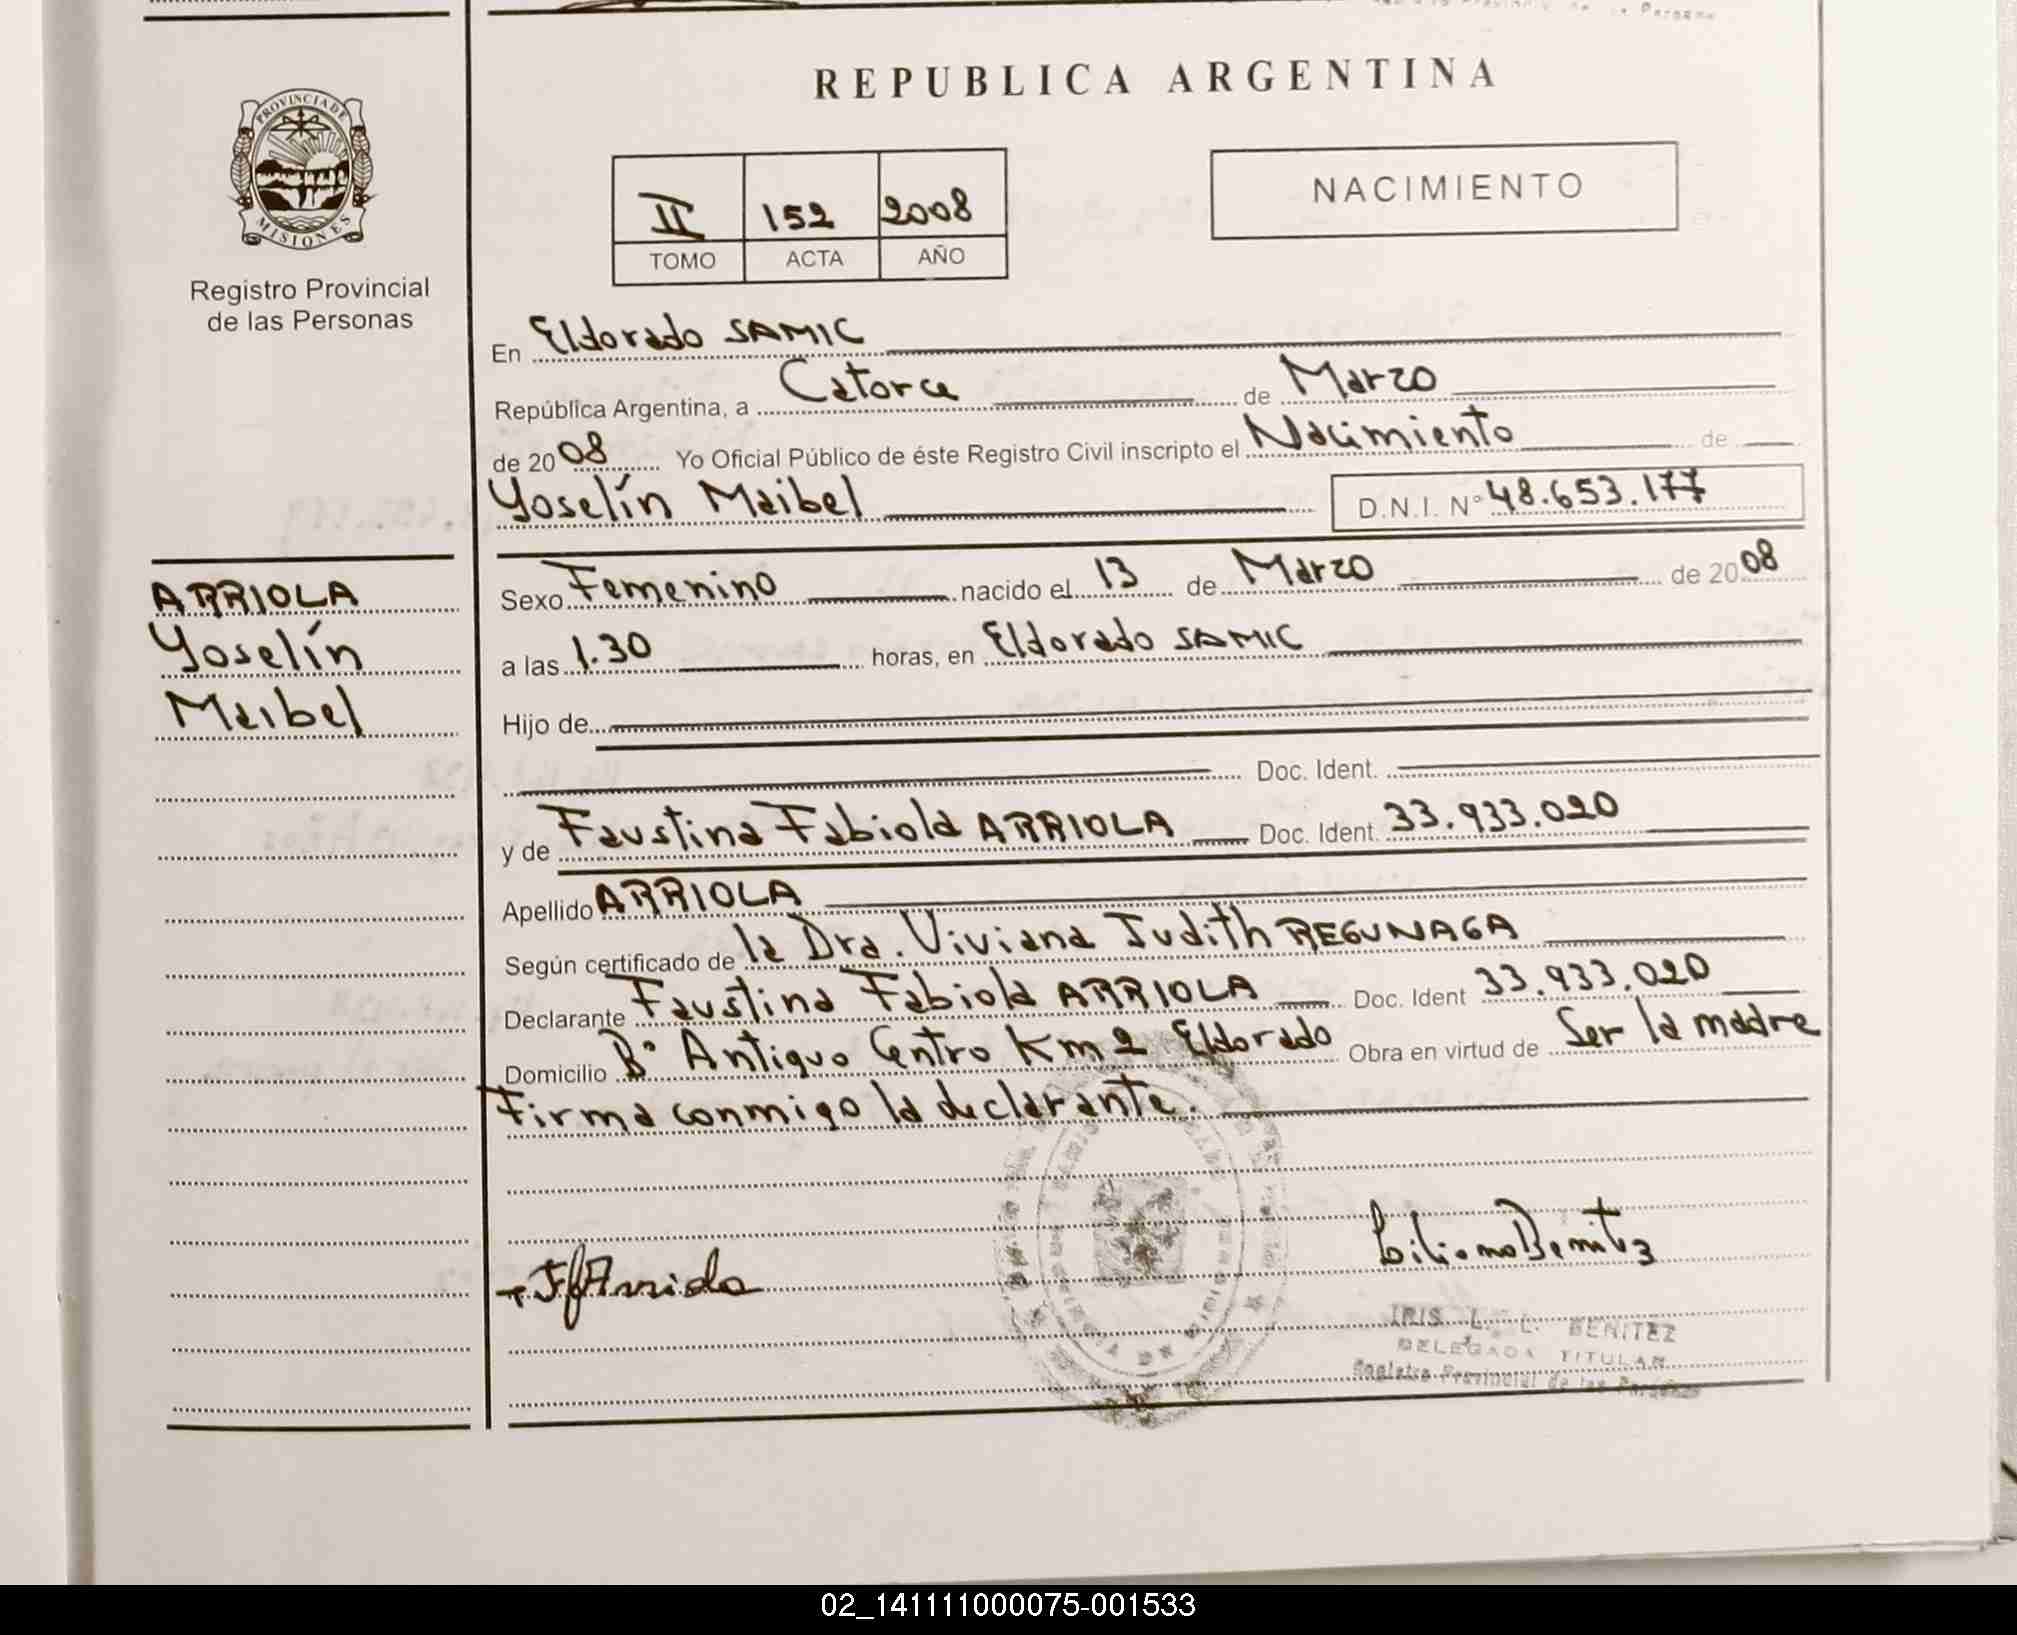 REPUBLICA ARGENTINA
PROVINCIA DE
MISIONES
Registro Provincial
de las Personas
II 152 2008
TOMO ACTA AÑO
NACIMIENTO
En Eldorado SAMIC
República Argentina, a Catorce de Marzo
de 2008 Yo Oficial Público de éste Registro Civil inscripto el Nacimiento de
Yoselín Maibel D.N.I. N° 48.653.177
ARRIOLA
Yoselín
Maibel
Sexo Femenino nacido el 13 de Marzo de 2008
a las 1.30 horas, en Eldorado SAMIC
Hijo de
Doc. Ident.
y de Faustina Fabiola ARRIOLA Doc. Ident. 33.933.020
Apellido ARRIOLA
Según certificado de la Dra. Viviana Judith REGUNAGA
Declarante Faustina Fabiola ARRIOLA Doc. Ident 33.933.020
Domicilio B° Antiguo Centro Km 2 Eldorado Obra en virtud de Ser la madre
Firma conmigo la declarante.
IRIS L. L. BENITEZ
DELEGADA TITULAR
Registro Provincial de las Personas
02_141111000075-001533